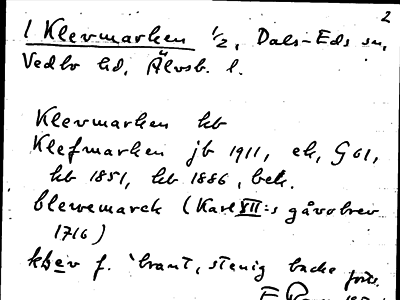 2
1 Klevmarken 1/2, Dals-Eds sn,
Vedbo hd, Älvsb. l.
Klevmarken kb
Klefmarken jb 1911, ek, G 61,
kb 1851, kb 1886, bek.
blewemarck (Karl XII:s gåvobrev
1716)
klev f. 'brant, stenig backe
forts.